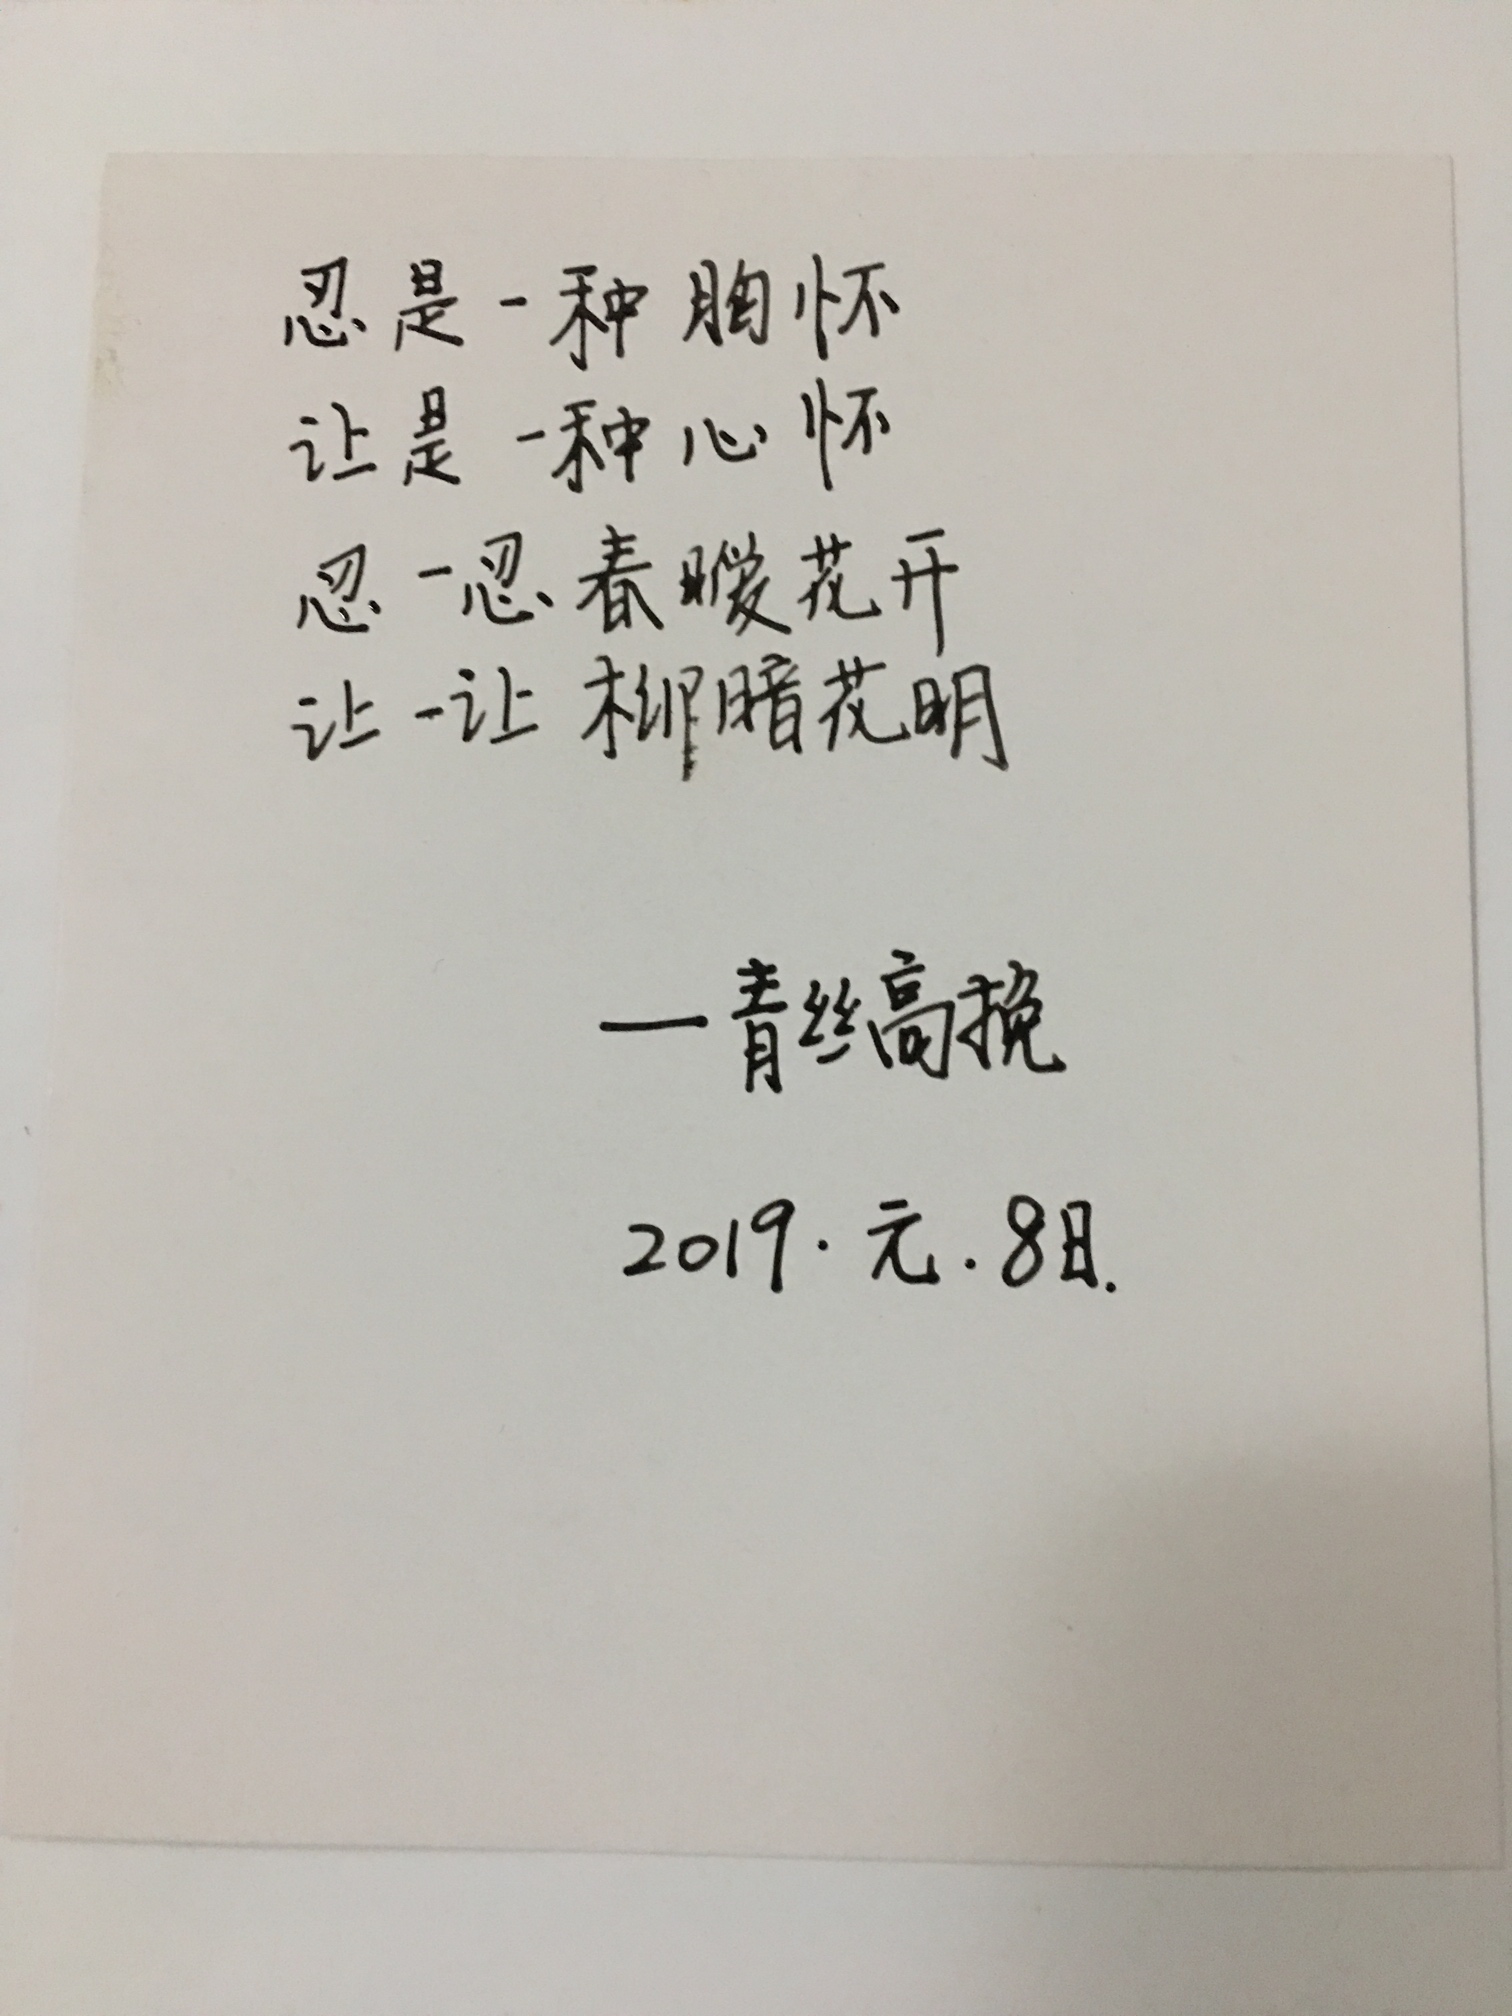 忍是一种胸怀
让是一种心怀
忍一忍春暖花开
让一让柳暗花明
—青丝高挽
2019.元.8日.